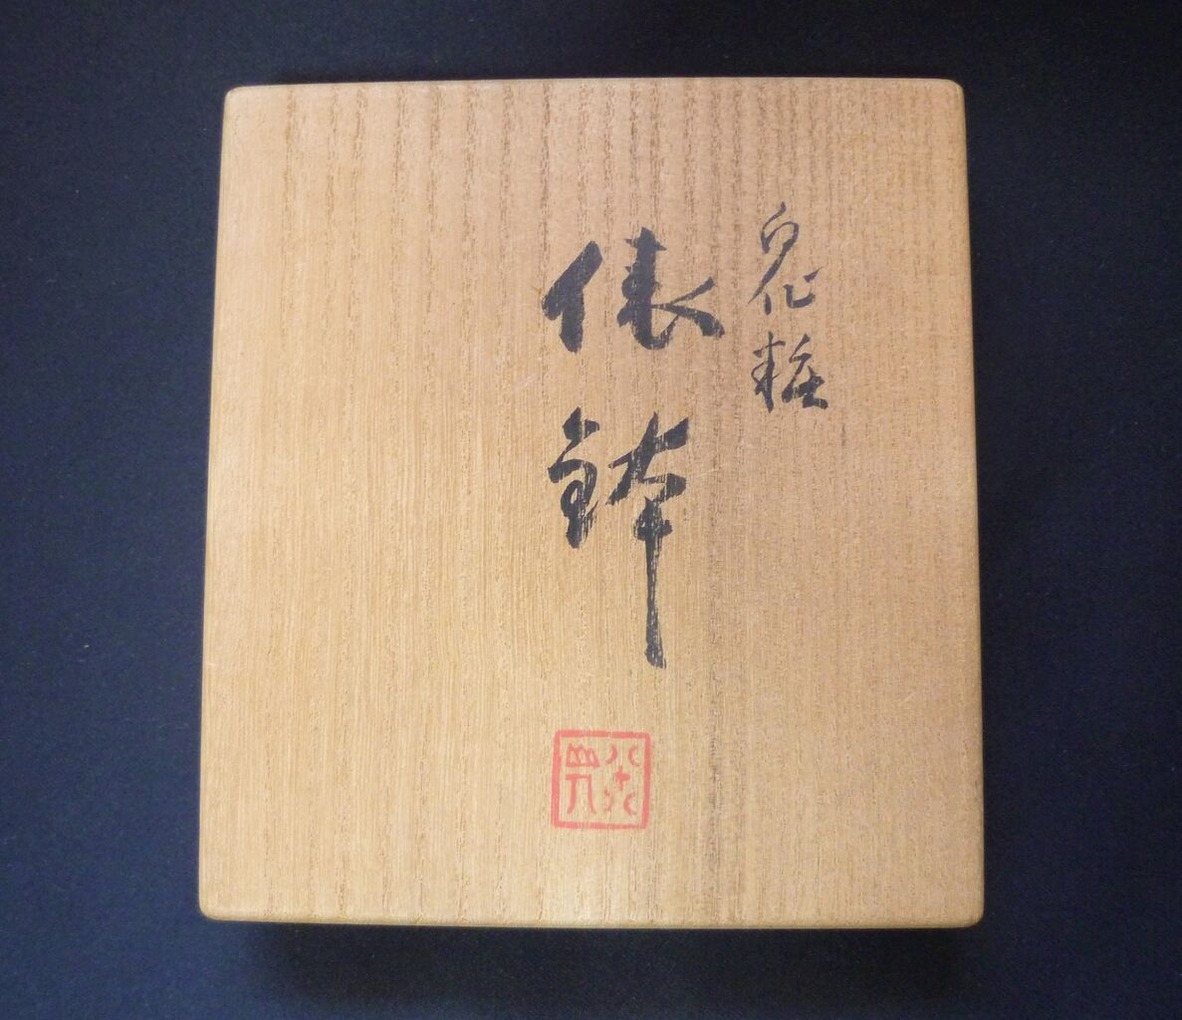 白化粧
俵鉢